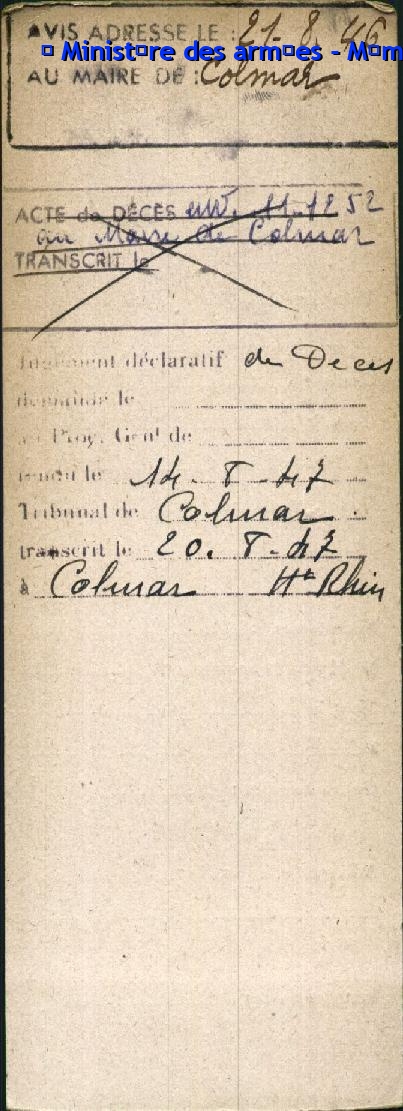 AVIS ADRESSE LE : 21-8 46
© Ministère des armées - Mém
AU MAIRE DE : Colmar
ACTE de DÉCÈS env. 11.12 52
au Maire de Colmar
TRANSCRIT le
Jugement déclaratif de Deces
demandé le
au Proc. Genl de
rendu le 14. 8 - 47
Tribunal de Colmar.
transcrit le 20. 8 - 47
à Colmar Ht Rhin